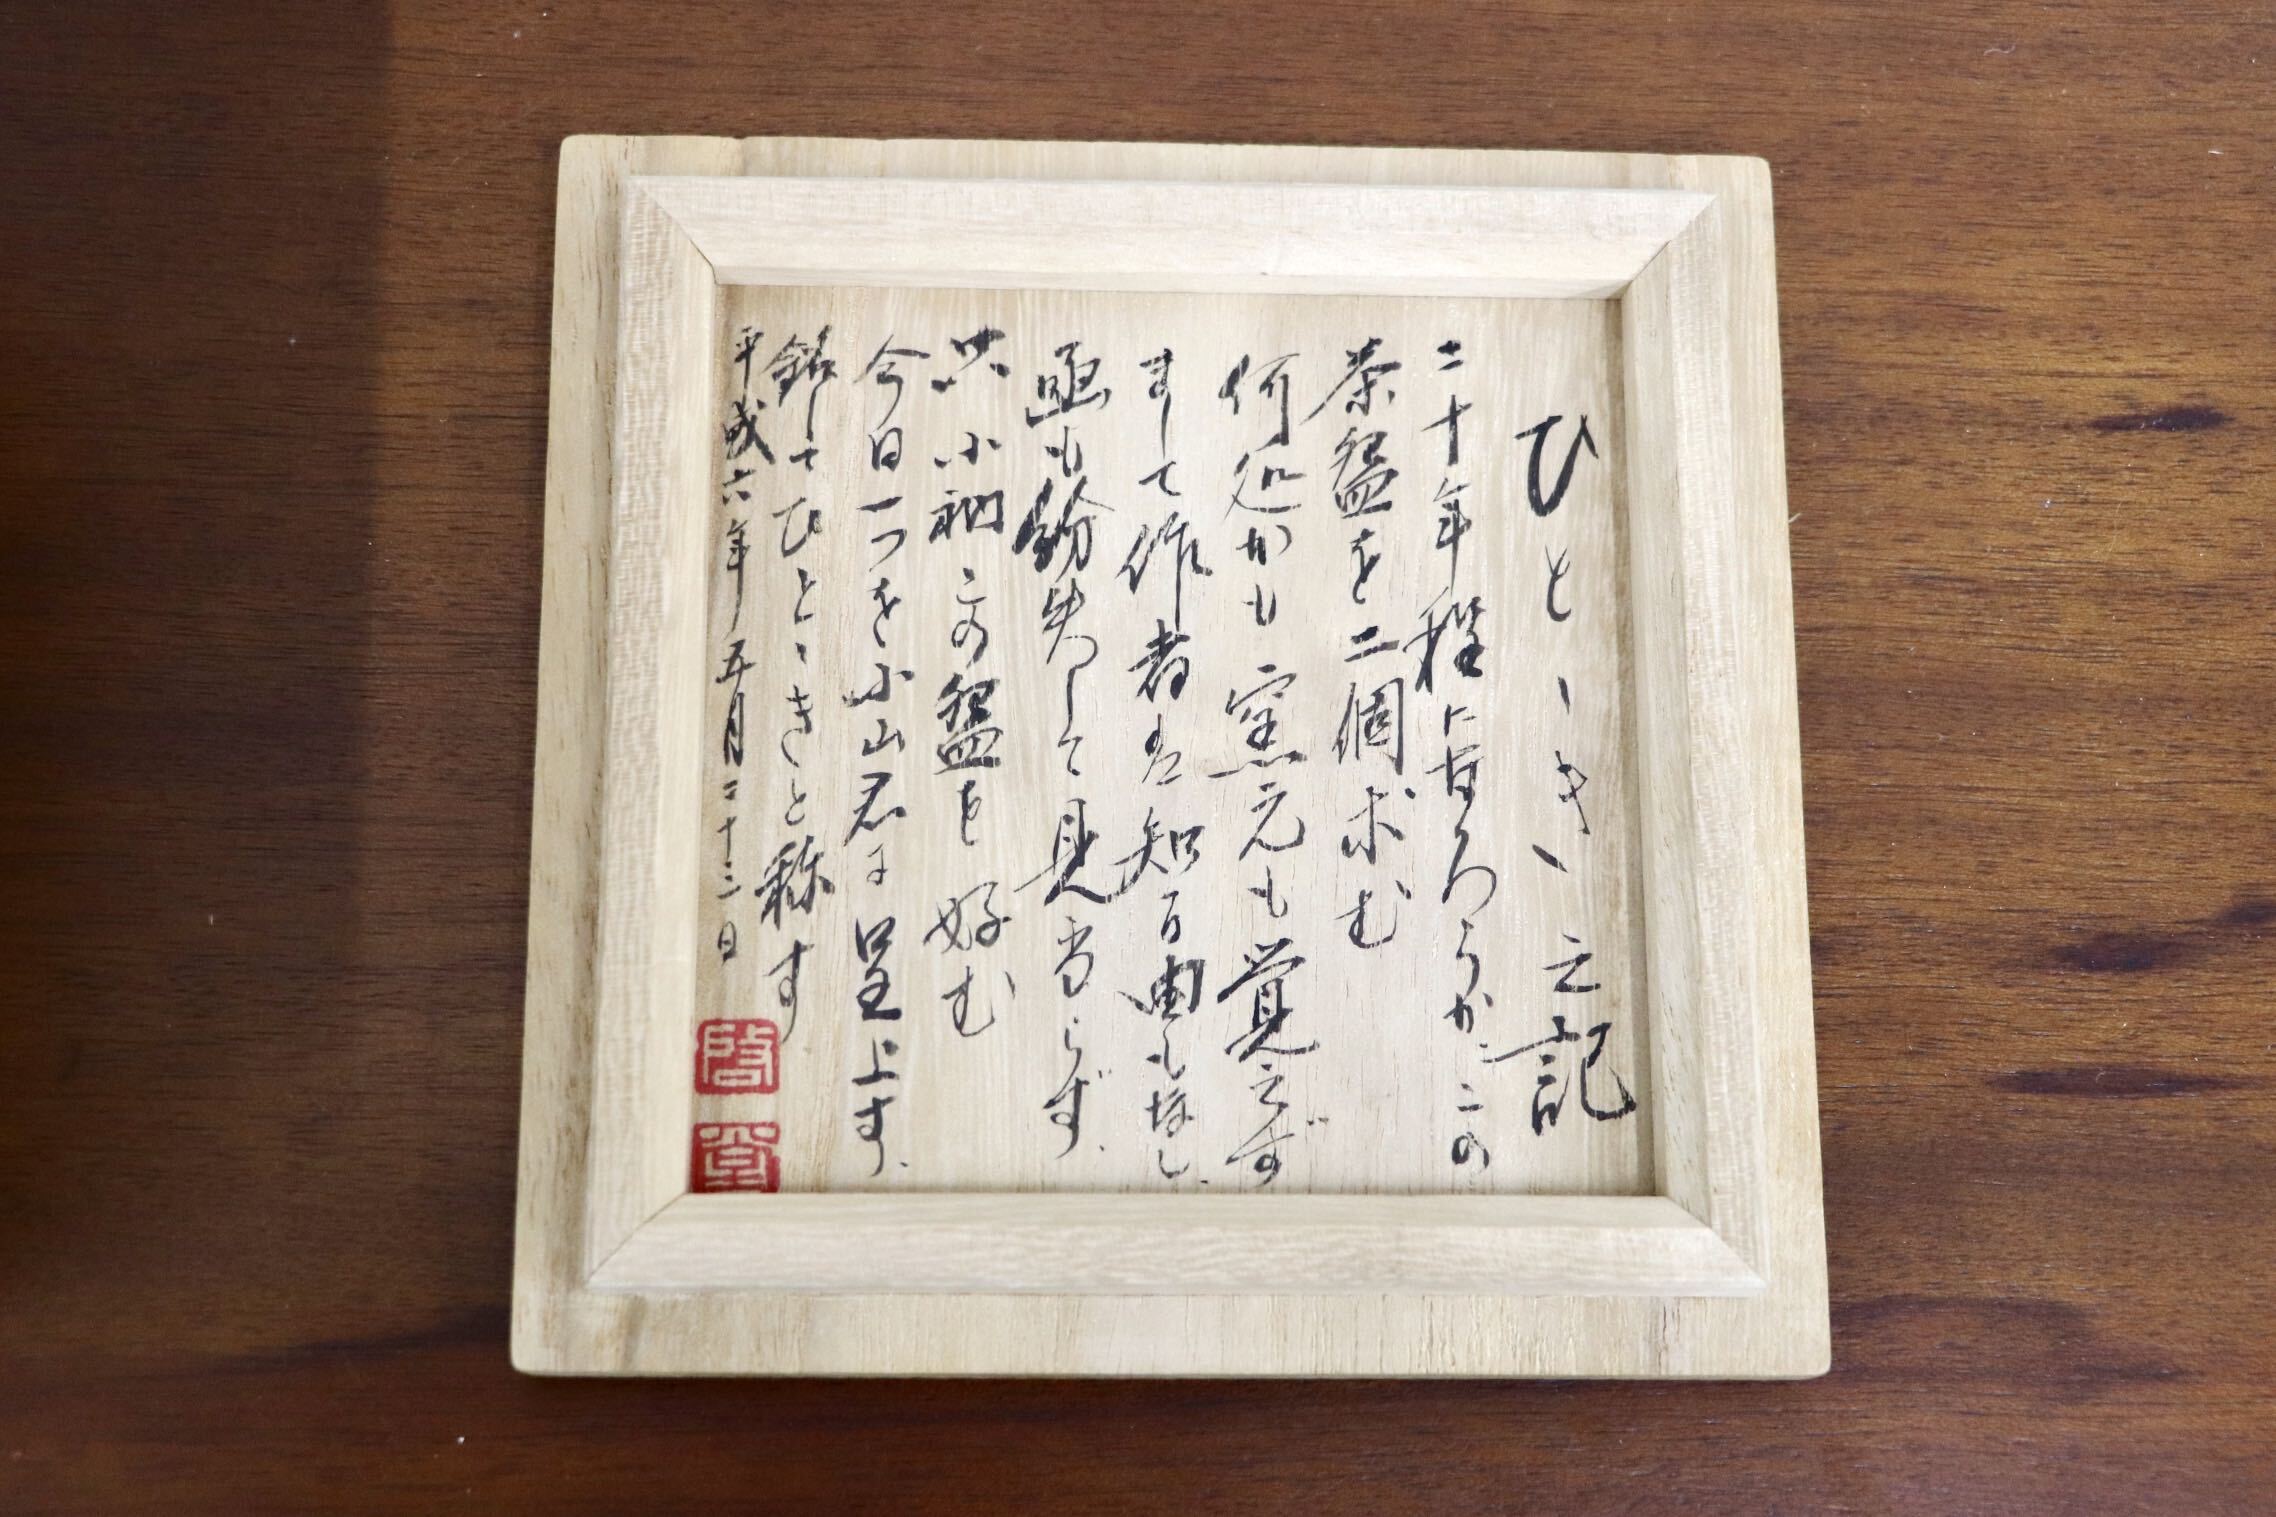 ひとゝき之記
二十年程になろうか この
茶盌を二個求む
何処かも窯元も覚えず
まして作者は知る由もなし
函も紛失して見当らず
只小衲この盌を好む
今日一つを小山君に呈上す
銘してひとゝきと称す
平成六年五月二十二日